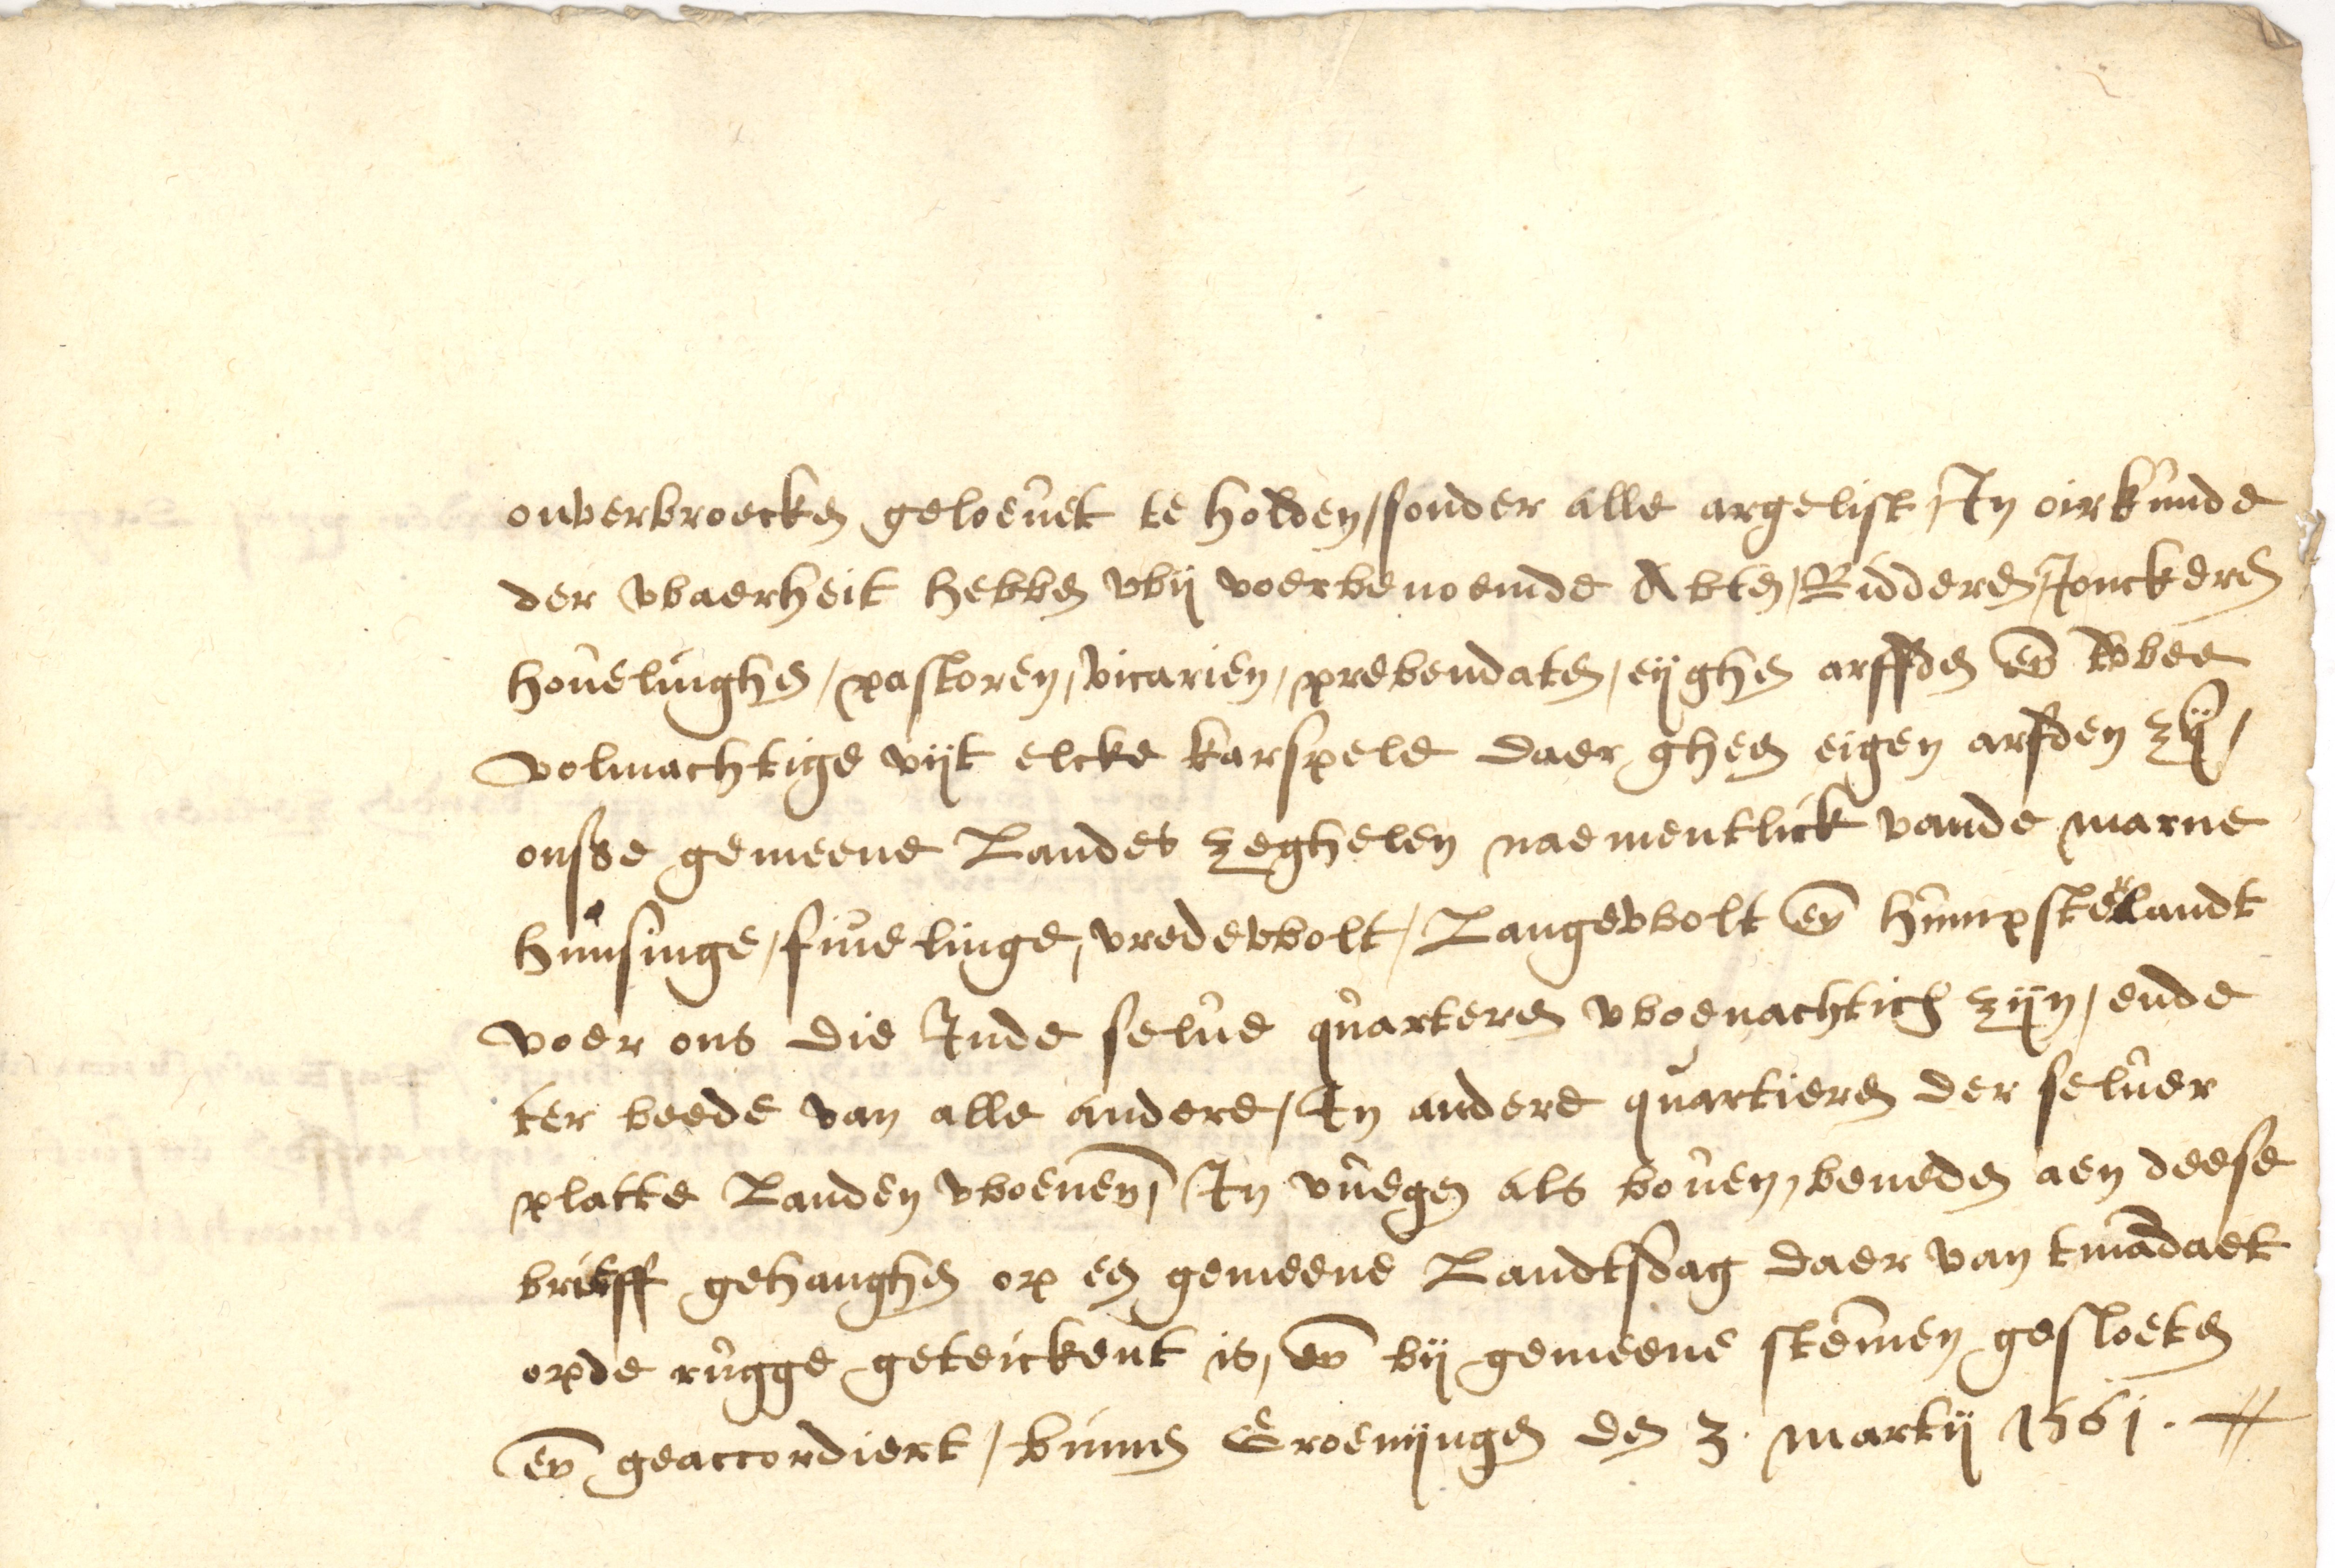 onverbroecken geloeuet te holden, sonder alle argelist, In oirkunde
der vvaerheit hebben vvij voerbenoemde Abten, Ridderen, Jonckeren
houelinghen, pastoren, vicarien, prebendaten, eijghen arffden en̄ tvvee
volmachtige vijt elcke karspele daer gheen eigen arfden zij,
onsse gemeene Landes zeghelen naementlick vande marne
hunsinge, fiuelinge, vredevvolt, Langevvolt en̄ humpsterlandt
voer ons die Inde selue quarteren vvoenachtich zijn, ende
ter beede van alle andere, In andere quartieren der seluer
platte Landen vvoenen, In vuegen als bouen, beneden aen deese
brieff gehanghen op een gemeene Landtsdag daer van tmādaet
opde rugge geteickent is, en̄ bij gemeene stēmen gesloeten
en̄ geaccordiert, binnen Groenijngen den 3. martij 1561.